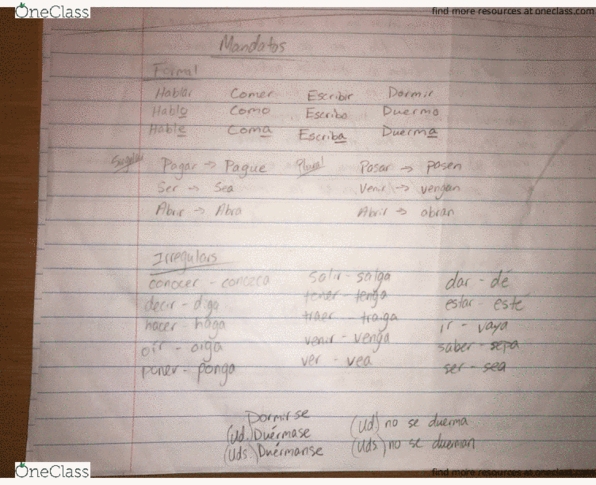 OneClass
find more resources at oneclass.com
Mandatos
Formal
Hablar Comer Escribir Dormir
Hablo Como Escribo Duermo
Hable Coma Escriba Duerma
Singular Pagar → Pague Plural Pasar → pasen
Ser → Sea Venir → vengan
Abrir → Abra Abrir → abran
Irregulars
conocer - conozca salir - salga dar - dé
decir - diga tener - tenga estar - esté
hacer - haga traer - traiga ir - vaya
oír - oiga venir - venga saber - sepa
poner - ponga ver - vea ser - sea
Dormirse
(Ud.) Duérmase (Ud) no se duerma
(Uds) Duérmanse (Uds) no se duerman
OneClass
find more resources at oneclass.com